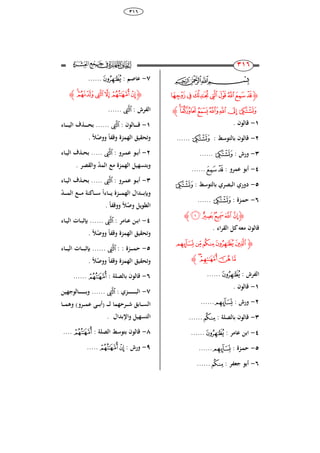 ٣١٦
٣١٦
﴿قَدْ سَمِعَ ٱللَّهُ قَوْلَ ٱلَّتِى تُجَٰدِلُكَ فِى زَوْجِهَا
وَتَشْتَكِىٓ إِلَى ٱللَّهِ وَٱللَّهُ يَسْمَعُ تَحَاوُرَكُمَآ﴾
١- قالون .
٢- قالون بالتوسط : وَتَشْتَكِىٓ ......
٣- ورش : وَتَشْتَكِىٓ ......
٤- أبو عمرو : قَد سَّمِعَ ......
٥- دوري البصري بالتوسط : وَتَشْتَكِىٓ
٦- حمزة : وَتَشْتَكِىٓ ......
﴿إِنَّ ٱللَّهَ سَمِيعٌۢ بَصِيرٌ ۝﴾
قالون معه كل القراء .
﴿ٱلَّذِينَ يُظَٰهِرُونَ مِنكُم مِّن نِّسَآئِهِم
مَّا هُنَّ أُمَّهَٰتِهِمْ﴾
الفرش : يُظَٰهِرُونَ ......
١- قالون .
٢- ورش : نِّسَآئِهِم ......
٣- قالون بالصلة : مِنكُم ......
٤- ابن عامر : يُظَٰهِرُونَ ......
٥- حمزة : نِّسَآئِهِم ......
٦- أبو جعفر : مِنكُم ......
٧- عاصم : يُظَٰهِرُونَ ......
﴿إِنْ أُمَّهَٰتُهُمْ إِلَّا ٱلَّٰٓـِٔى وَلَدْنَهُمْ﴾
الفرش : ٱلَّٰٓـِٔى ......
١- قالون : ٱلَّٰٓـِٔى ...... بحذف الياء
وتحقيق الهمزة وقفاً ووصْلاً .
٢- أبو عمرو : ٱلَّٰٓـِٔى ..... بحذف الياء
وبتسهيل الهمزة مع المدّ والقصر .
٣- أبو عمرو : ٱلَّٰٓـِٔى ..... بحذف الياء
وإبدال الهمزة ياءً ساكنة مع المدّ
الطويل وصْلاً ووقفاً .
٤- ابن عامر : ٱلَّٰٓـِٔى ...... بإثبات الياء
وتحقيق الهمزة وقفاً ووصْلاً .
٥- حمزة : ٱلَّٰٓـِٔى ...... بإثبات الياء
وتحقيق الهمزة وقفاً ووصْلاً .
٦- قالون بالصلة : أُمَّهَٰتُهُمْ ......
٧- البزي : ٱلَّٰٓـِٔى ...... وبالوجهين
السابق شرحهما لـ (أبي عمرو) وهما
التسهيل والإبدال .
٨- قالون بتوسط الصلة : أُمَّهَٰتُهُمْ ....
٩- ورش : إِنْ أُمَّهَٰتُهُمْ .....